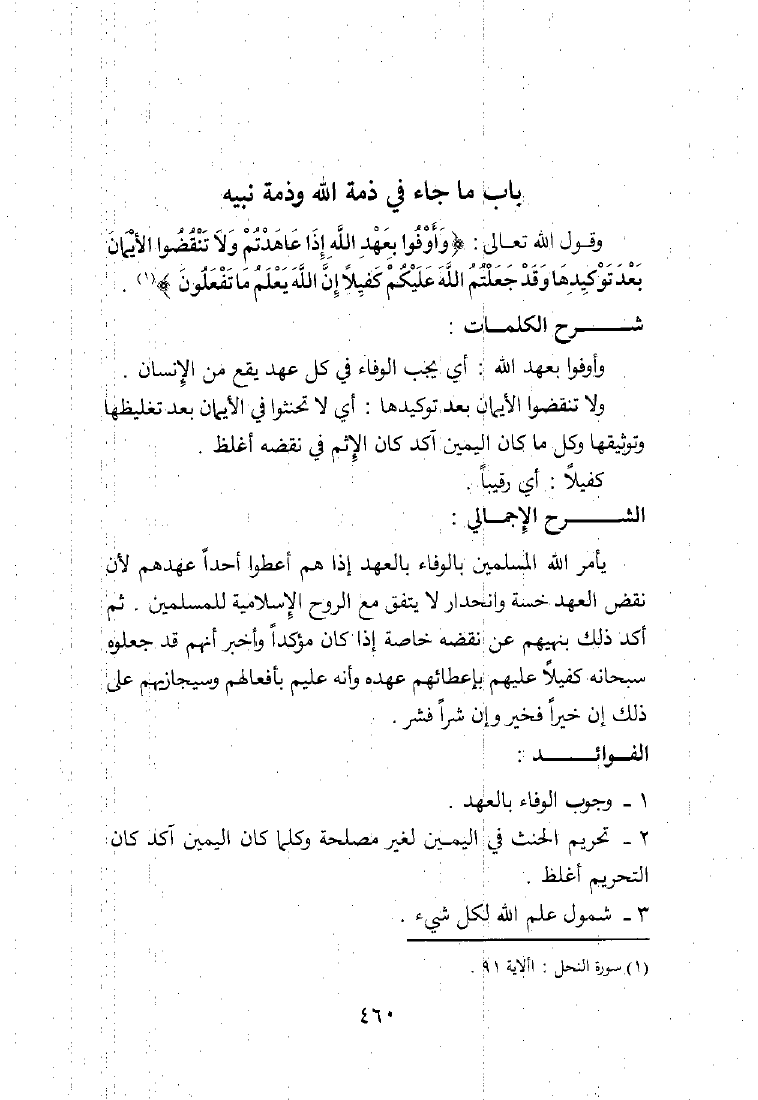 باب ما جاء في ذمة الله وذمة نبيه
وقـول الله تعـالى : ﴿وَأَوْفُوا بِعَهْدِ اللَّهِ إِذَا عَاهَدْتُمْ وَلَا تَنْقُضُوا الأَيْمَانَ
بَعْدَ تَوْكِيدِهَا وَقَدْ جَعَلْتُمُ اللَّهَ عَلَيْكُمْ كَفِيلاً إِنَّ اللَّهَ يَعْلَمُ مَا تَفْعَلُونَ ﴾(١) .
شـــــرح الكلمـــات :
وأوفوا بعهد الله : أي يجب الوفاء في كل عهد يقع من الإنسان .
ولا تنقضوا الأيمان بعد توكيدها : أي لا تحنثوا في الأيمان بعد تغليظها
وتوثيقها وكل ما كان اليمين آكد كان الإثم في نقضه أغلظ .
كفيلاً : أي رقيباً .
الشـــــــرح الإجمـالي :
يأمر الله المسلمين بالوفاء بالعهد إذا هم أعطوا أحداً عهدهم لأن
نقض العهد خسة وانحدار لا يتفق مع الروح الإسلامية للمسلمين . ثم
أكد ذلك بنهيهم عن نقضه خاصة إذا كان مؤكداً وأخبر أنهم قد جعلوه
سبحانه كفيلاً عليهم بإعطائهم عهده وأنه عليم بأفعالهم وسيجازيهم على
ذلك إن خيراً فخير وإن شراً فشر .
الفــوائـــــــد :
١ ـ وجوب الوفاء بالعهد .
٢ ـ تحريم الحنث في اليمـين لغير مصلحة وكلما كان اليمين آكد كان
التحريم أغلظ .
٣ ـ شمول علم الله لكل شيء .
(١) سورة النحل : األاية ٩١ .
٤٦٠